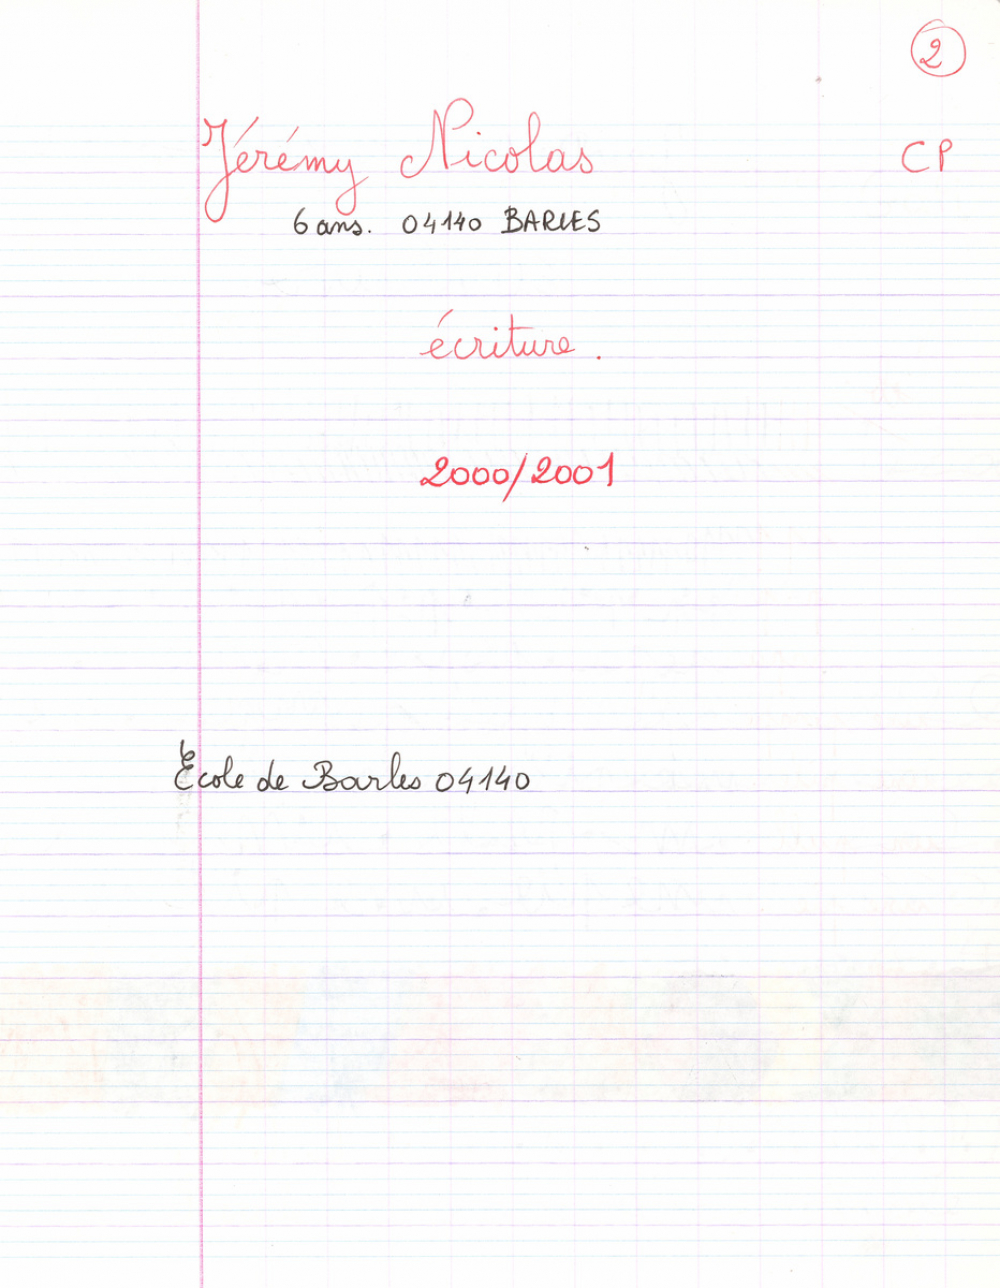 2
Jérémy Nicolas
CP
6 ans. 04140 BARLES
écriture.
2000/2001
École de Barles 04140